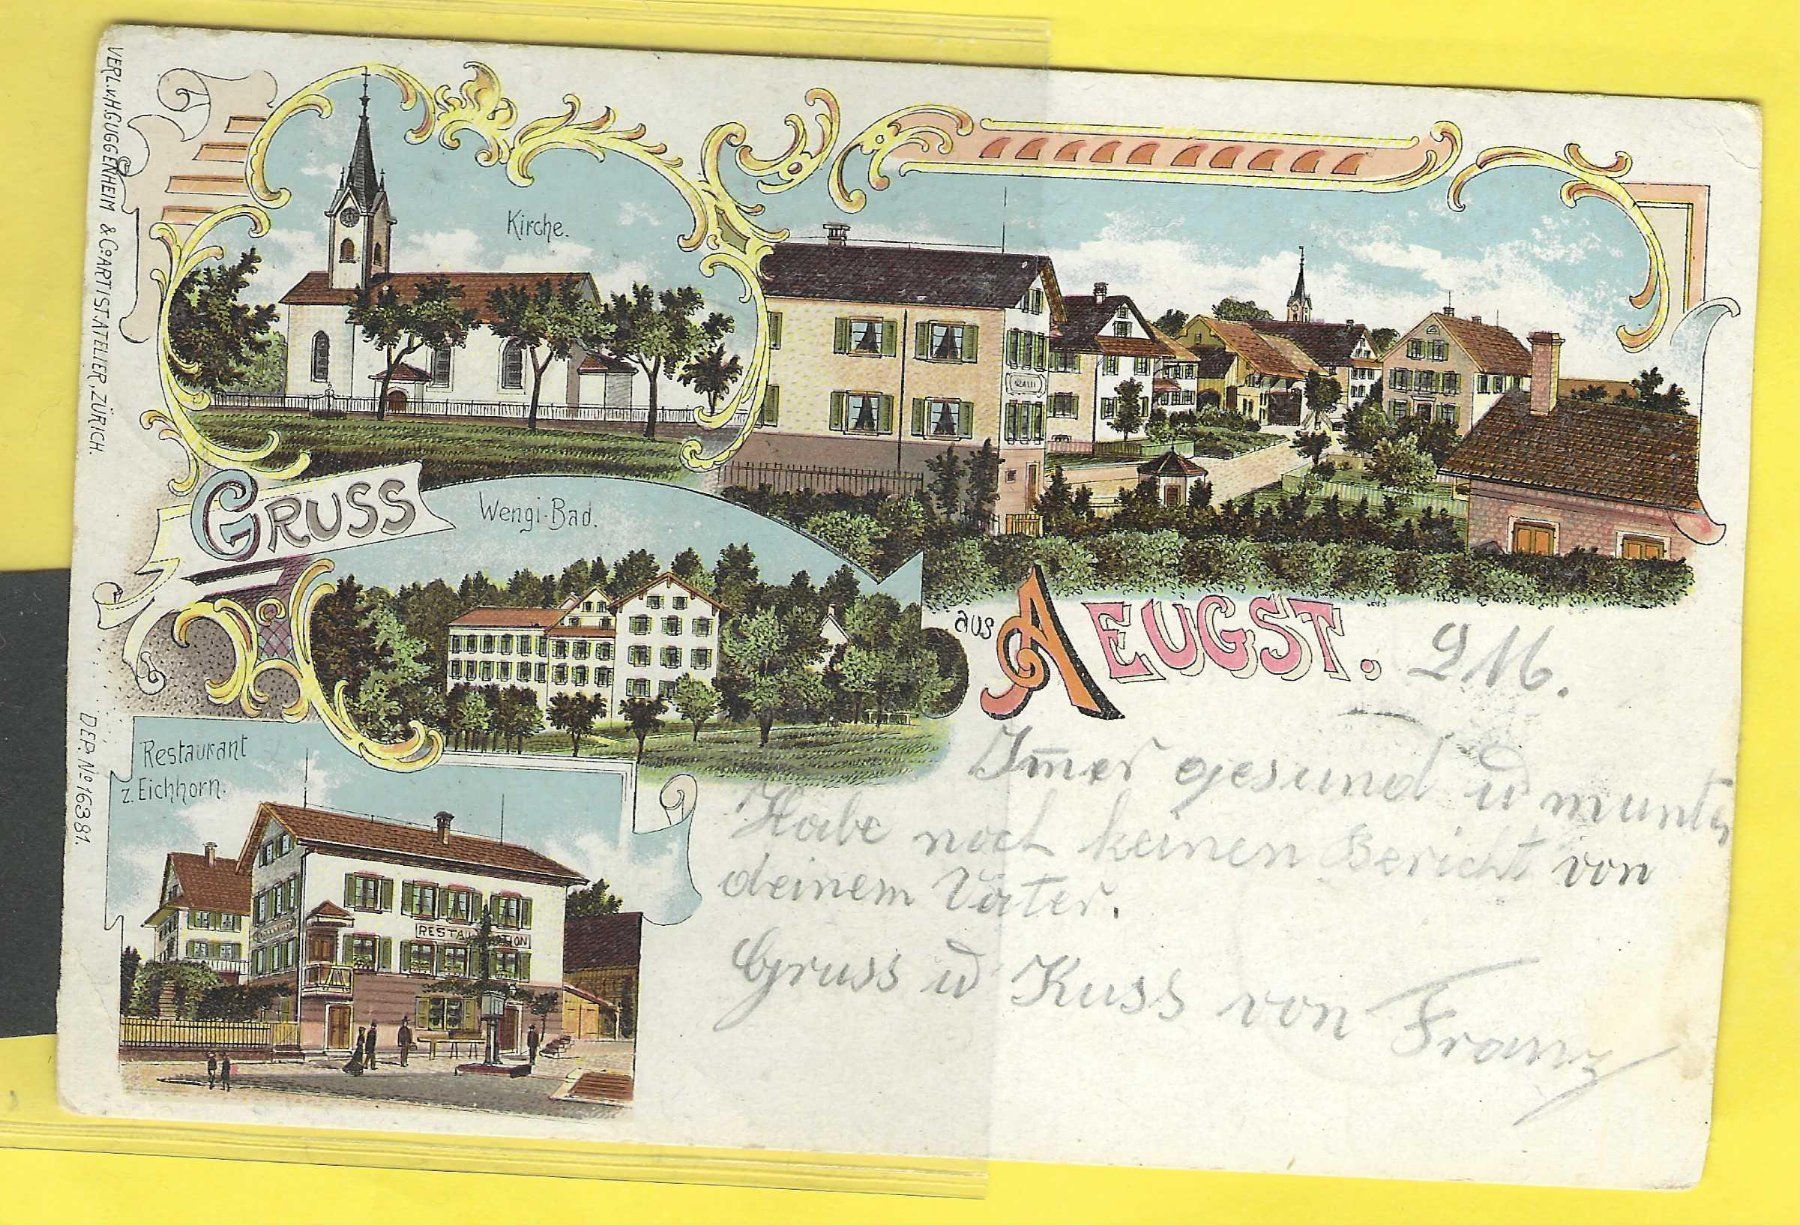 VERL. v. H. GUGGENHEIM & Co. ARTIST. ATELIER, ZÜRICH.
DEP. No 16381.
Kirche.
GRUSS
Wengi-Bad.
aus AEUGST.
Restaurant
z. Eichhorn.
RESTAURATION
9 16.
Im̄er gesund ū munter
Habe noch keinen Bericht von
deinem Vater.
Gruss ū Kuss von Franz